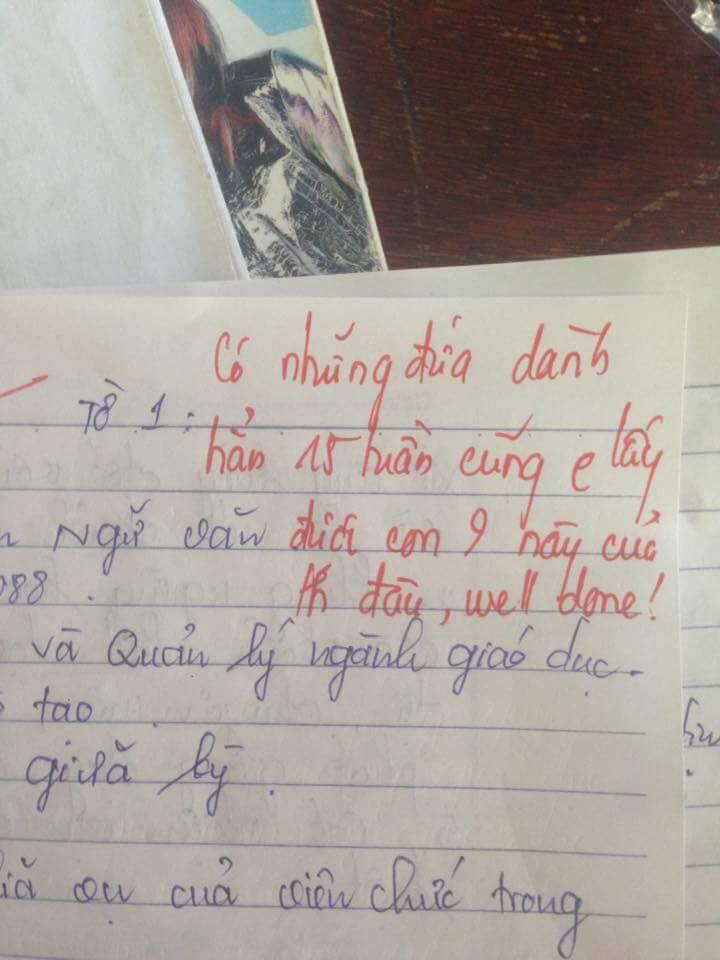 Có những đứa dành
Tổ 1: hẳn 15 tuần cũng e lấy
Ngữ văn được con 9 này của
088. th đâu, well done!
và Quản lý ngành giáo dục.
tạo
giữa kỳ.
vụ của viên chức trong